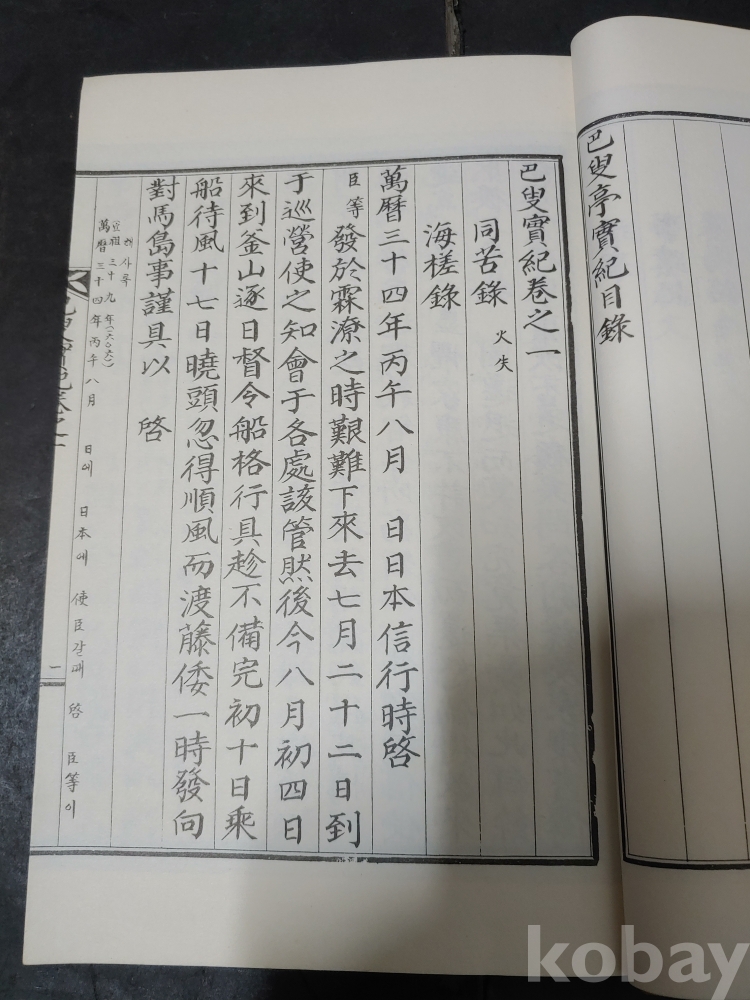 巴叟亭實紀目錄
巴叟實紀卷之一
同苦錄 火失
海槎錄
萬曆三十四年丙午八月 日日本信行時啓
臣等 發於霖潦之時艱難下來去七月二十二日到
于巡營使之知會于各處該管然後今八月初四日
來到釜山逐日督令船格行具趁不備完初十日乘
船待風十七日曉頭忽得順風而渡藤倭一時發向
對馬島事謹具以 啓
해사록
(宣祖 三十九年(一六○六))
萬曆三十四年丙午八月 日에 日本에 使臣갈때 啓 臣等이
一
kobay